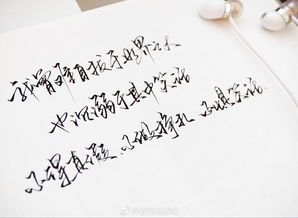 我曾难自拔于世界之大
也沉溺于其中梦话
不得真假 不做挣扎 不惧笑话